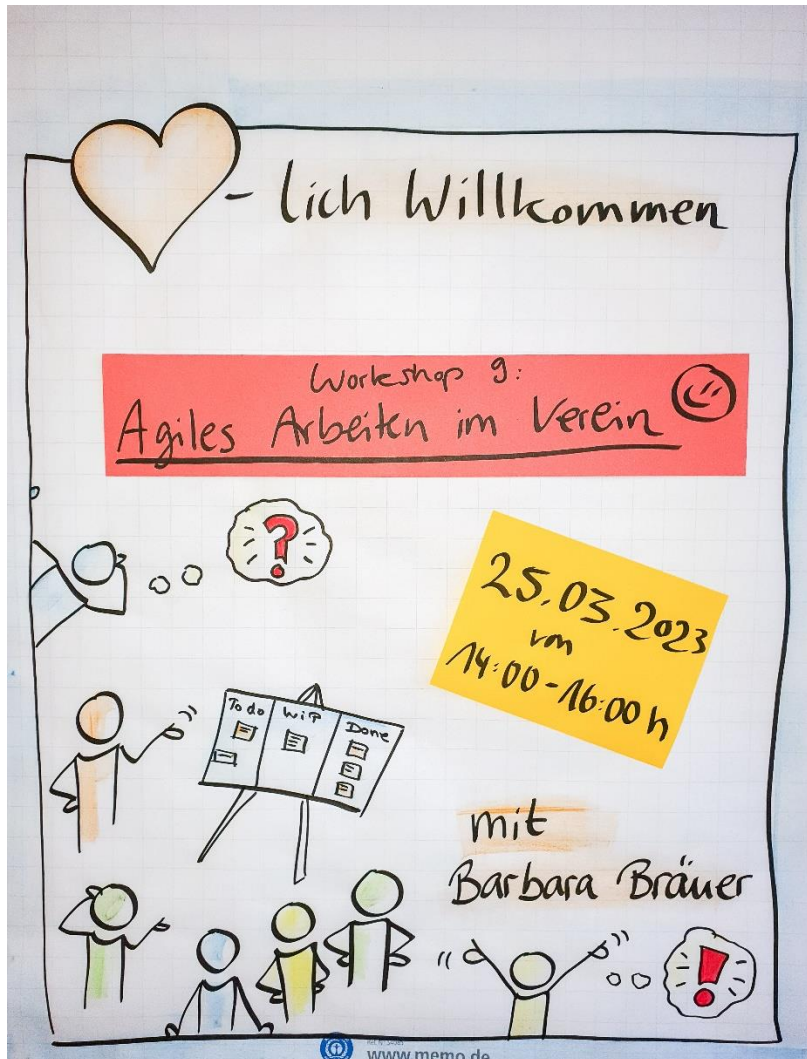 - lich Willkommen
Workshop 9:
Agiles Arbeiten im Verein
?
25.03.2023
von
14:00-16:00 h
To do WiP Done
mit
Barbara Bräuer
!
www.memo.de